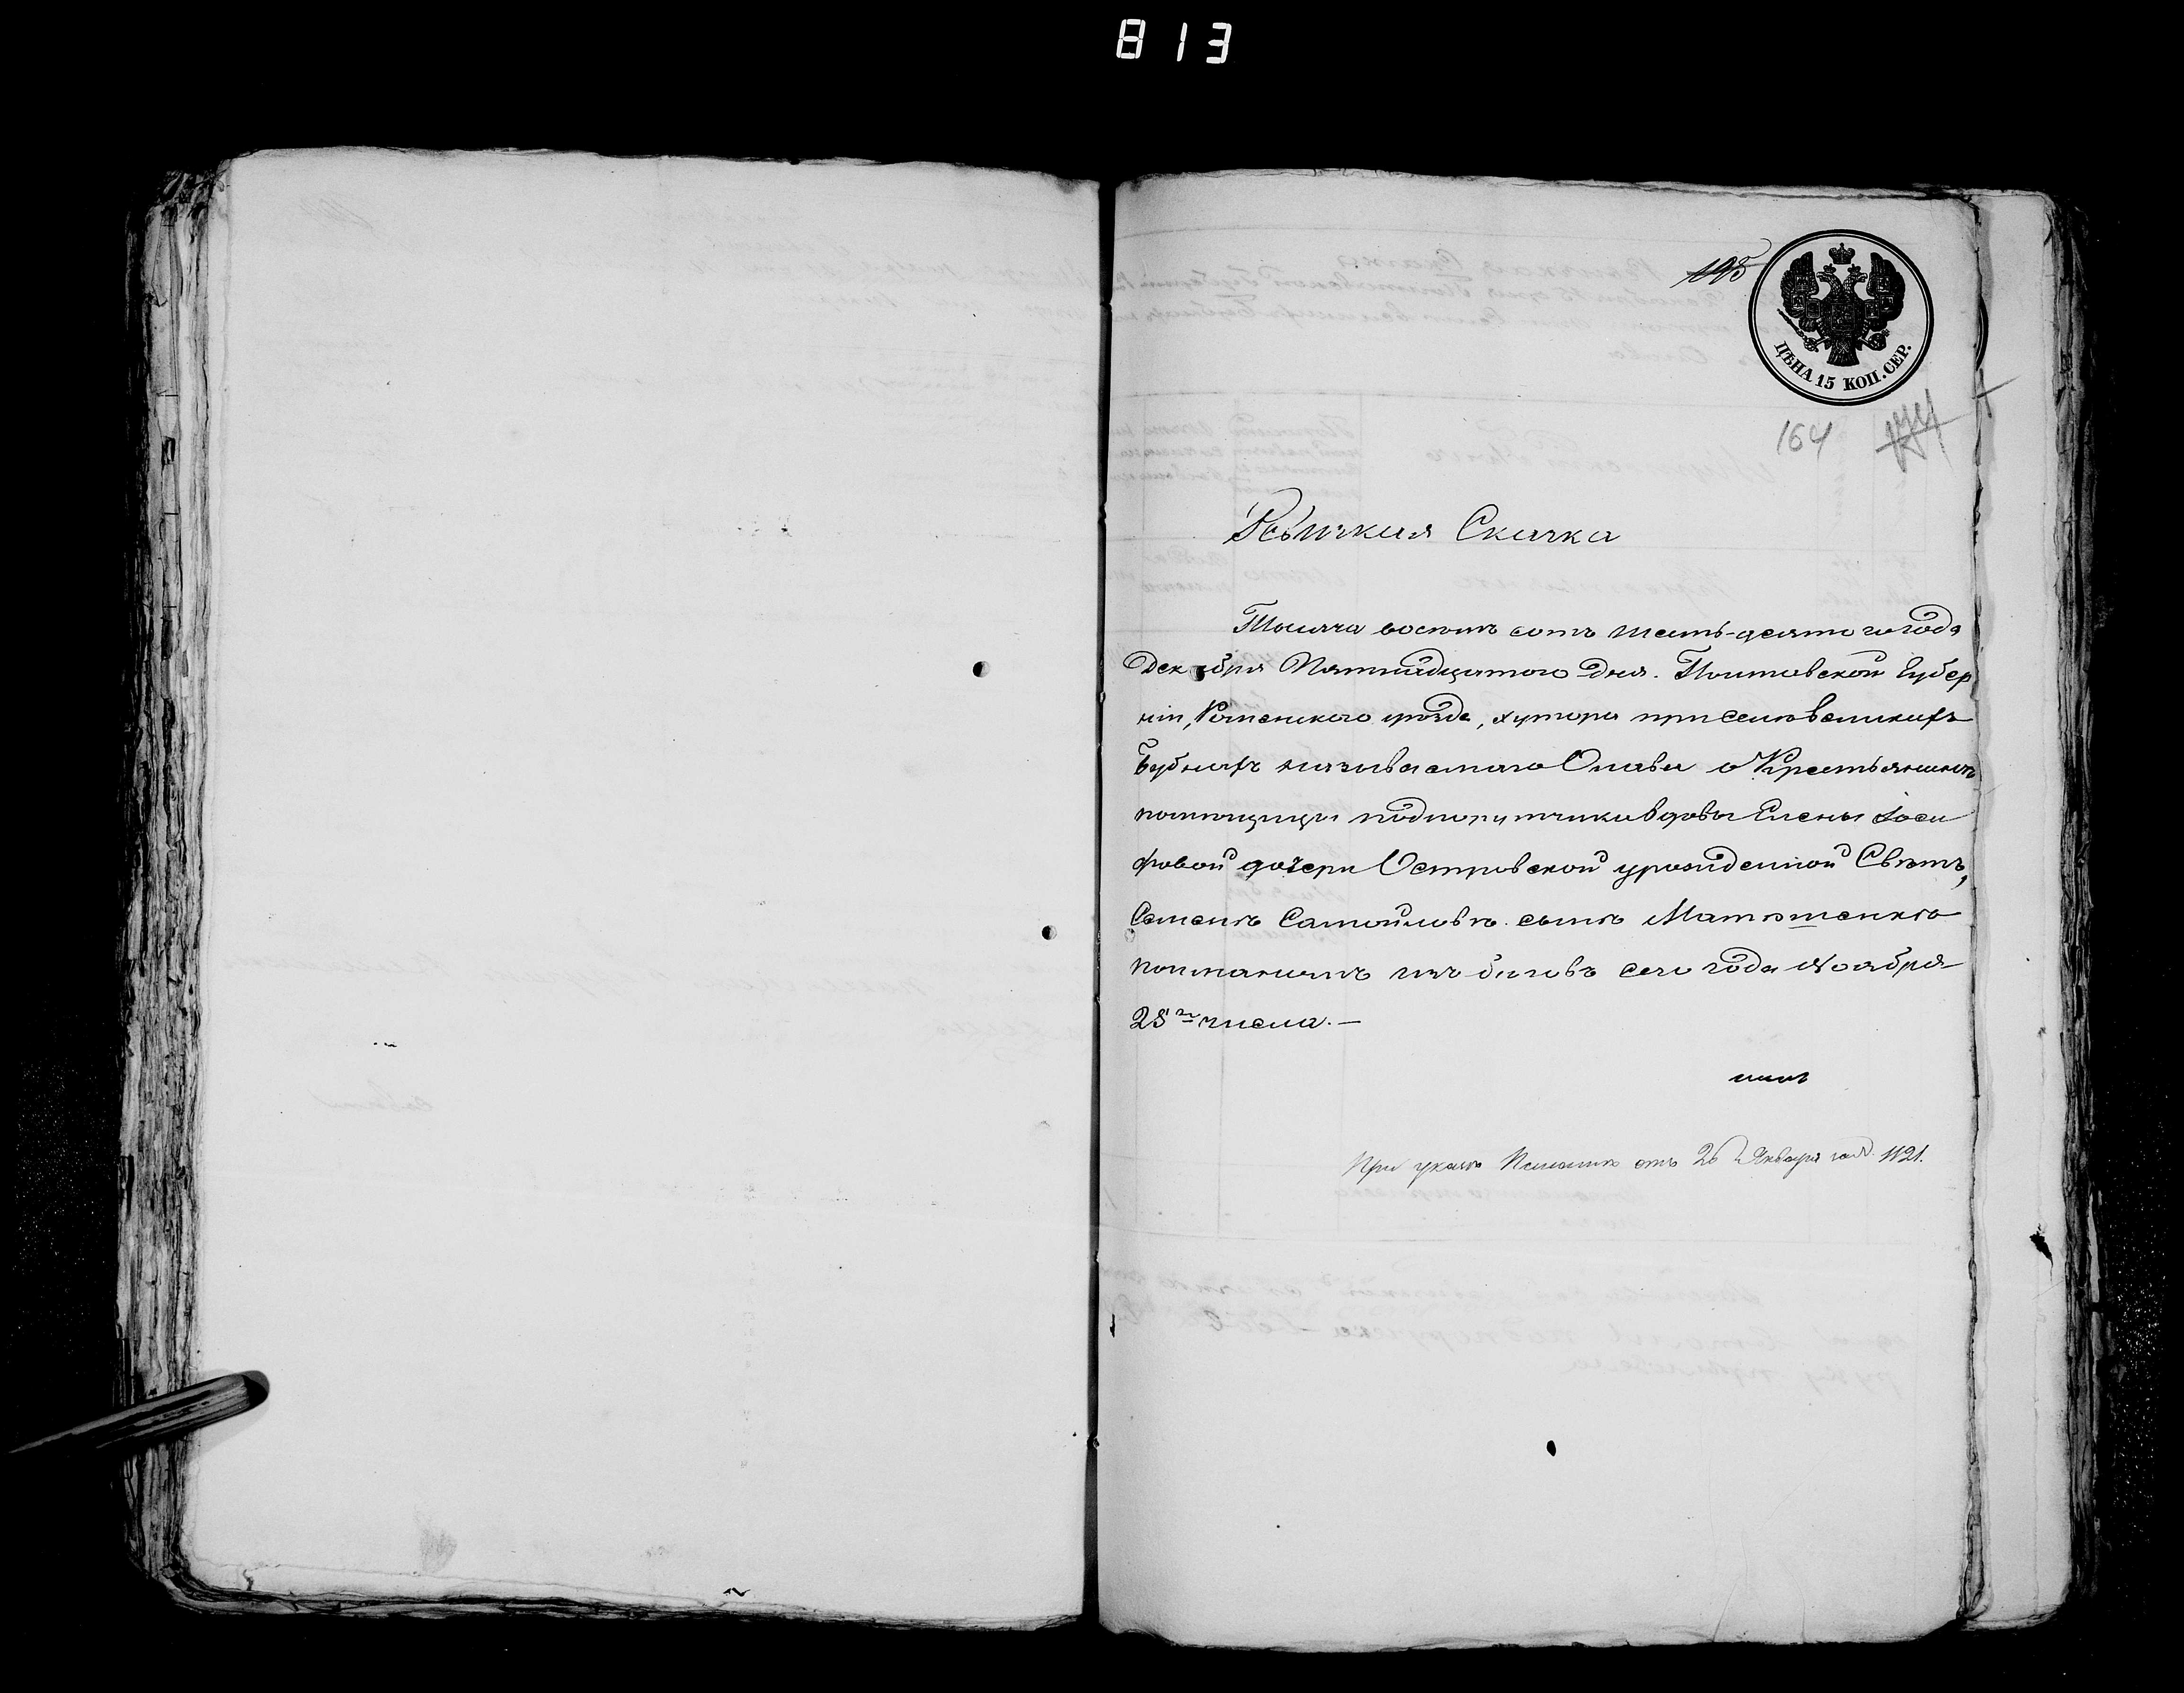 813
195
ЦѢНА 15 КОП. СЕР.
164
174
Ревизкая Сказка
Тысяча восемь сотъ шесть-десятого года
Декабря Пятнадцатого дня. Полтавской Губер
ніи, Роменского уѣзда, хутора при селѣ великихъ
Бубнахъ называемаго Олава о Крестьянинѣ
помѣщицы подпорутчики вдовы Елены Іоси
фовой дочери Островской урожденной Свѣтъ,
Семенѣ Самойловѣ сынѣ Матюшенкѣ
пойманномъ изъ бѣговъ сего года Ноября
25го числа.—
При указѣ Палаты отъ 26 Января за № 1121.